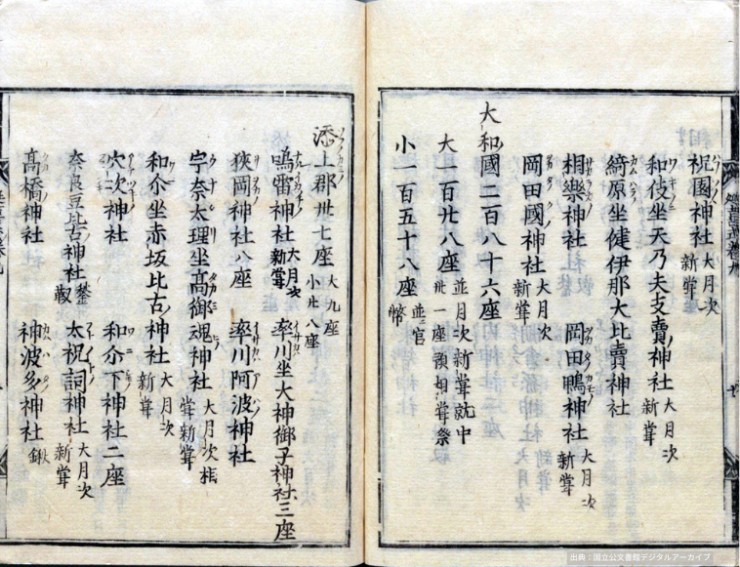 祝園神社 大月次新嘗
和伎坐天乃夫支賣神社 大月次新嘗
綺原坐健伊那大比賣神社
相樂神社 大月次新嘗 岡田鴨神社 大月次新嘗
岡田國神社 大月次新嘗
大和國二百八十六座
大一百廿八座 並月次新嘗就中卅一座預相嘗祭
小一百五十八座 並官幣
添上郡卅七座 大九座小廿八座
鳴雷神社 大月次新嘗 率川坐大神御子神社三座
狹岡神社八座 率川阿波神社
宇奈太理坐高御魂神社 大月次相嘗新嘗
和尒坐赤坂比古神社 大月次新嘗
穴次神社 和尒下神社二座
奈良豆比古神社 鍬靫 太祝詞神社 大月次新嘗
高橋神社 神波多神社 鍬
出典：国立公文書館デジタルアーカイブ